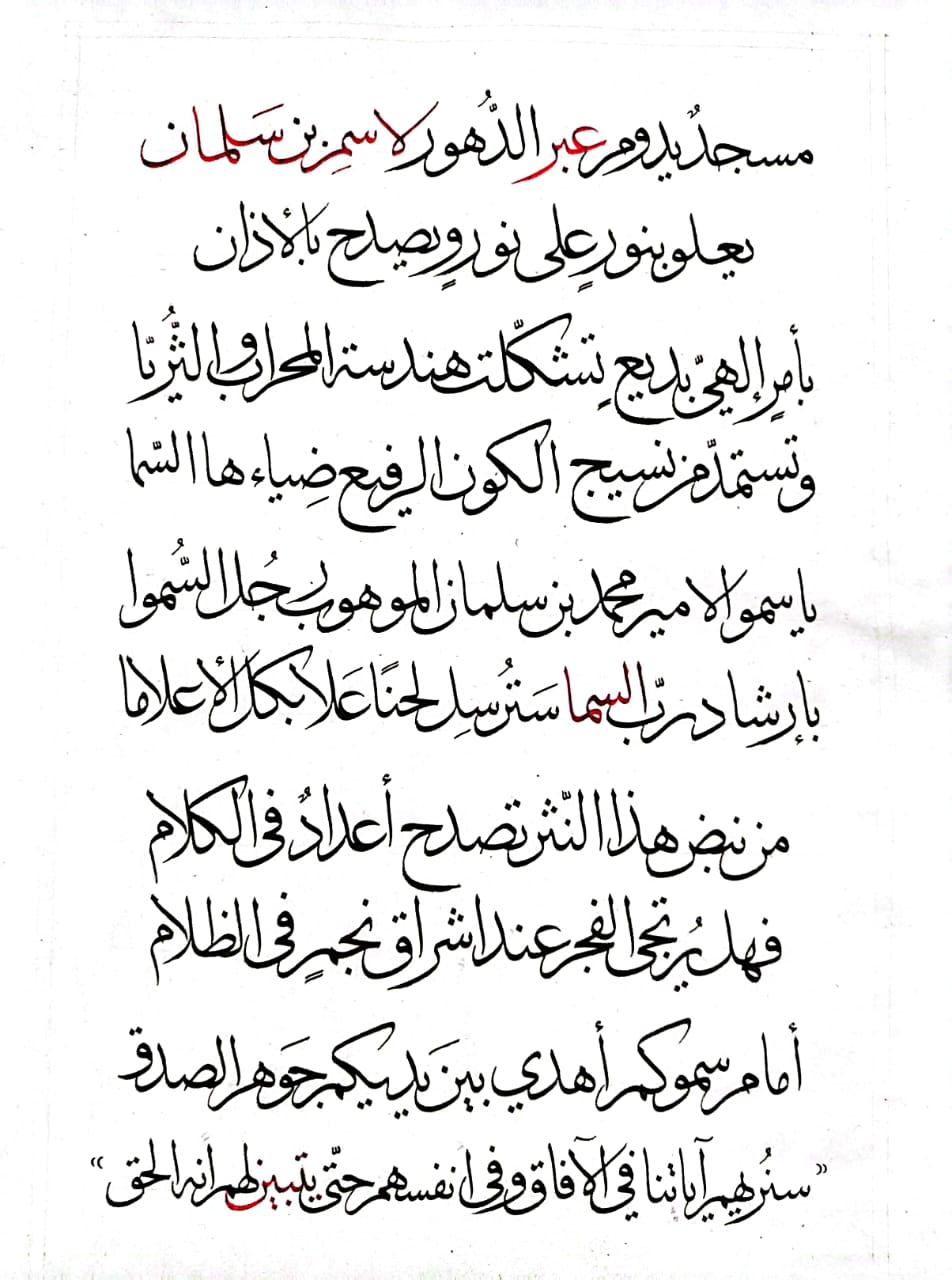 مسجدٌ يدوم عبر الدُّهور لاسمِ بن سَلمان
يعلو بنورٍ على نورٍ ويصدح بالأذان
بأمرٍ إلهيّ بديعٍ تشكّلت هندسة المحراب والثُّريّا
وتستمدّ من نسيج الكون الرفيع ضِياءها السّما
يا سمو الامير محمد بن سلمان الموهوب رجُل السُّموا
بإرشاد ربّ السما سَتُرسِل لحنًا عَلا بكل الأعلاما
من نبض هذا النّثر تصدح أعدادٌ في الكلام
فهل يُرتجى الفجر عند اشراق نجمٍ في الظلام
أمام سموكم أهدي بين يَديكم جَوهر الصدق
“سنُريهم آياتنا في الآفاق وفي انفسهم حتّى يتبين لهم انه الحق”